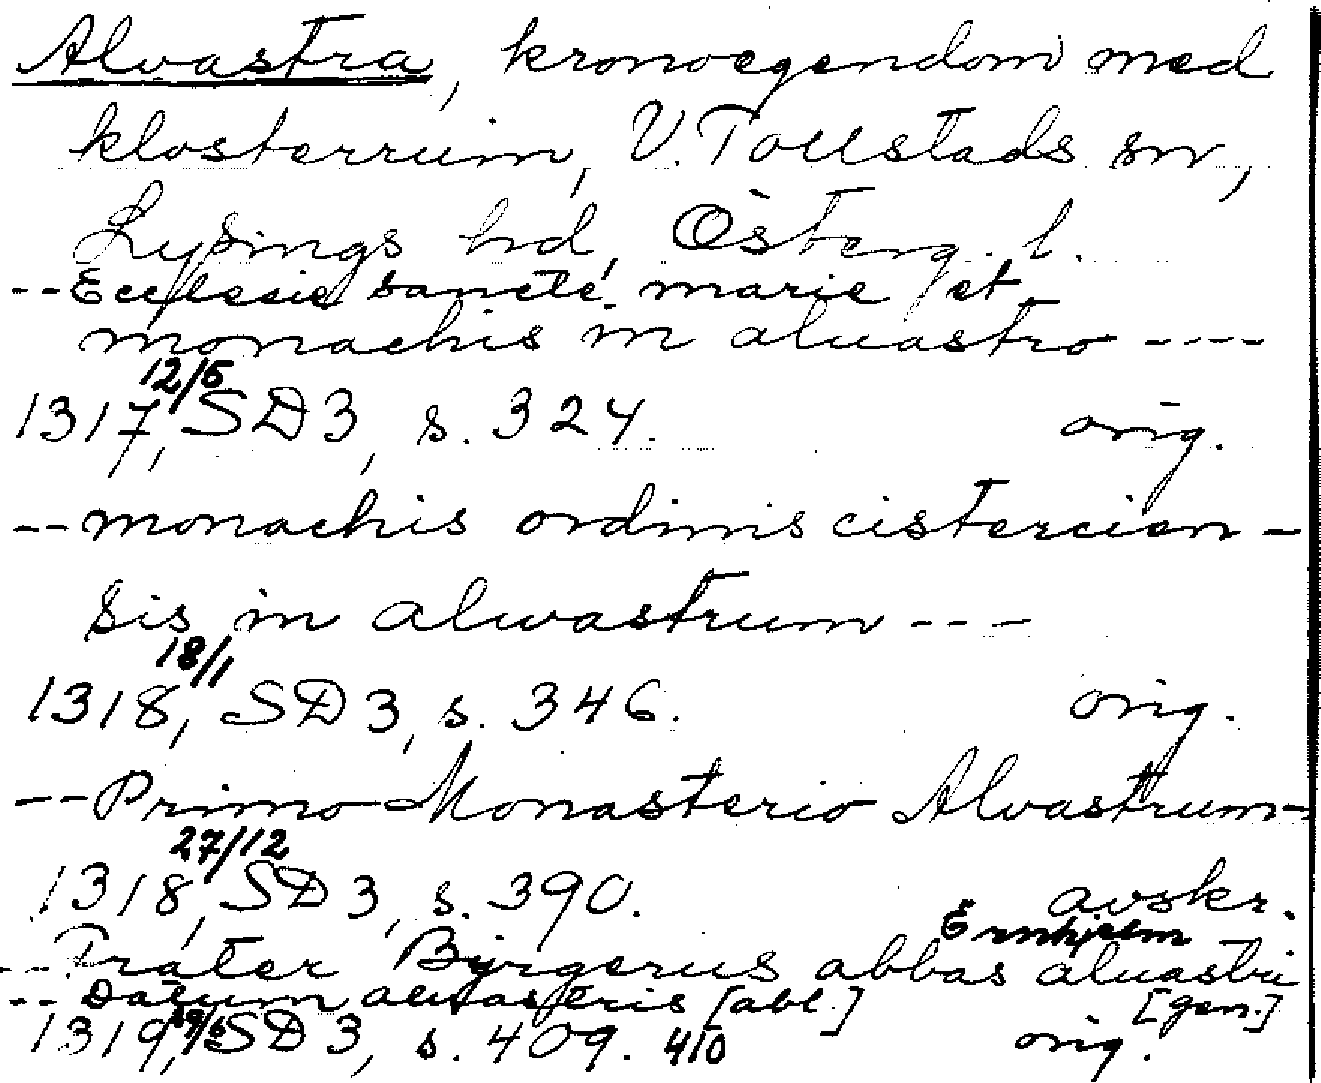 Alvastra, kronoegendom med
klosterruin, V. Tollstads sn,
Lysings hd, Österg. l.
-- Ecclesie sancte marie et
monachis in aluastro ----
12/5
1317, SD 3, s. 324. orig.
-- monachis ordinis cistercien-
sis in alwastrum ---
18/1
1318, SD 3, s. 346. orig.
-- Primo Monasterio Alvastrum-
27/12
1318, SD 3, s. 390. avskr.
Ernhjelm
-- Frater Byrgerus abbas aluastri
-- Datum aluastris [abl.] [gen.]
1319, SD 3, s. 409. 410 orig.